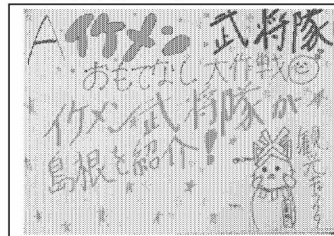 A イケメン 武将隊
おもてなし 大作戦
イケメン武将隊が
島根を紹介!
観光